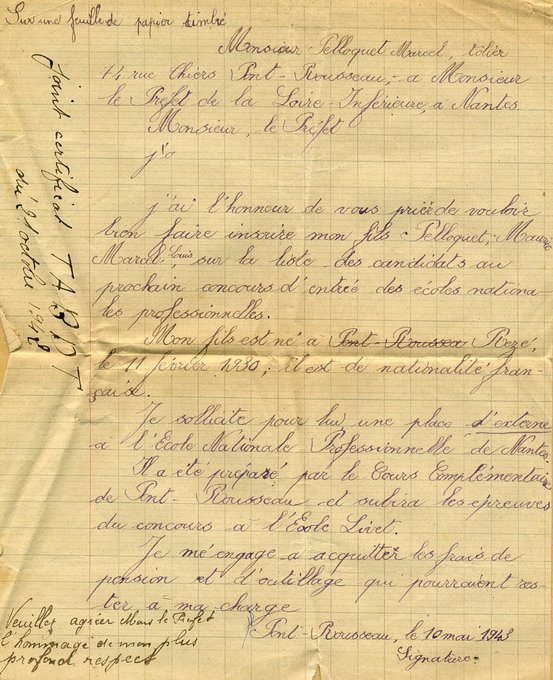 Sur une feuille de papier timbré
Monsieur Pelloquet Marcel, tôlier
14 rue Thiers Pont-Rousseau,- a Monsieur
le Préfet de la Loire-Inférieure, a Nantes.
Monsieur, le Préfet
j'a
j'ai l'honneur de vous priér de vouloir
bien faire inscrire mon fils Pelloquet, Maurice
Marcel Louis sur la liste des candidats au
prochain concours d'entrée des écoles nationa-
les professionnelles.
Mon fils est né a Pont-Rousseau Rezé,
le 11 février 1930, il est de nationalité fran-
çaise.
Je sollicite pour lui une place d'externe
a l'École Nationale Professionnelle de Nantes.
Il a été préparé par le Cours Complémentaire
de Pont-Rousseau et subira les épreuves
du concours a l'École Livet.
Je mé engage a acquitter les frais de
pension et d'outillage qui pourraient res-
ter a ma charge
Pont-Rousseau, le 10 mai 1943
Signature.
Veuillez agréer Mons le Préfet
l'hommage de mon plus
profond respect
joint certificat
du 21 octobre